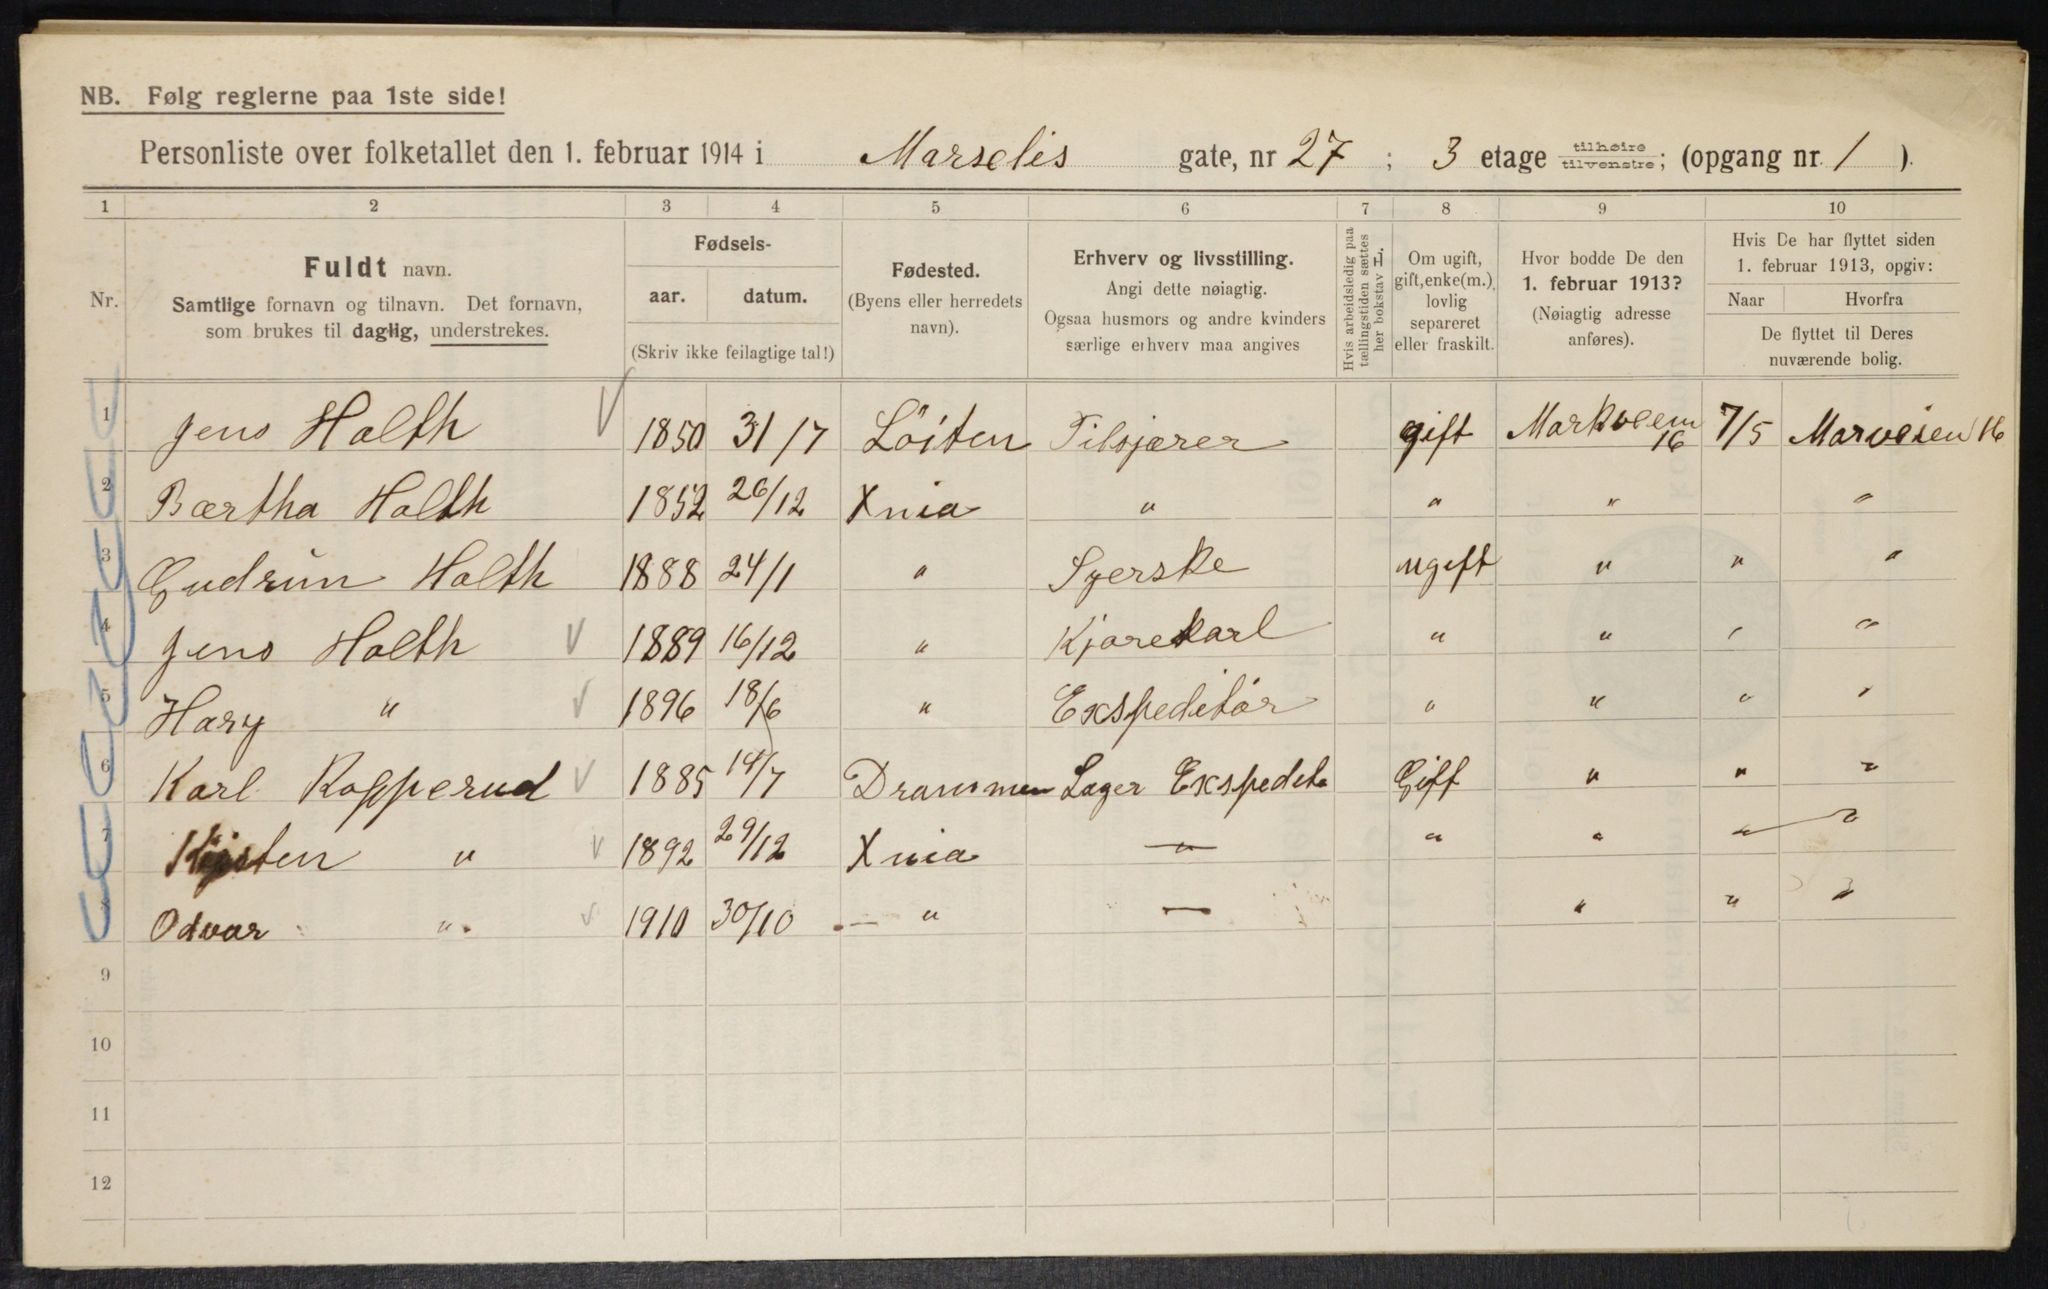 NB. Følg reglerne paa 1ste side!
Personliste over folketallet den 1. februar 1914 i Marselis gate, nr 27 ; 3 etage tilhøire/tilvenstre; (opgang nr. 1 ).
1 2 3 4 5 6 7 8 9 10
Nr.
Fuldt navn.
Samtlige fornavn og tilnavn. Det fornavn,
som brukes til daglig, understrekes.
Fødsels-
aar. datum.
(Skriv ikke feilagtige tal!)
Fødested.
(Byens eller herredets
navn).
Erhverv og livsstilling.
Angi dette nøiagtig.
Ogsaa husmors og andre kvinders
særlige erhverv maa angives
Hvis arbeidsledig paa
tællingstiden sættes
her bokstav L.
Om ugift,
gift, enke(m.),
lovlig
separeret
eller fraskilt.
Hvor bodde De den
1. februar 1913?
(Nøiagtig adresse
anføres).
Hvis De har flyttet siden
1. februar 1913, opgiv:
Naar Hvorfra
De flyttet til Deres
nuværende bolig.
1 Jens Holth 1850 31/7 Löiten Tilsjærer gift Markveem 16 7/5 Marveien 16
2 Bærtha Holth 1852 26/12 Xnia " " " "
3 Gudrun Holth 1888 24/1 " Syerske ugift " " "
4 Jens Holth 1889 16/12 " Kjørekarl " " " "
5 Hary " 1896 18/6 " Ekspeditör " " " "
6 Karl Kopperud 1885 14/7 Drammen Lager Ekspedit. Gift " " "
7 Kirsten " 1892 29/12 Xnia — " — " " " "
8 Odvar " 1910 30/10 — " — " " "
9
10
11
12